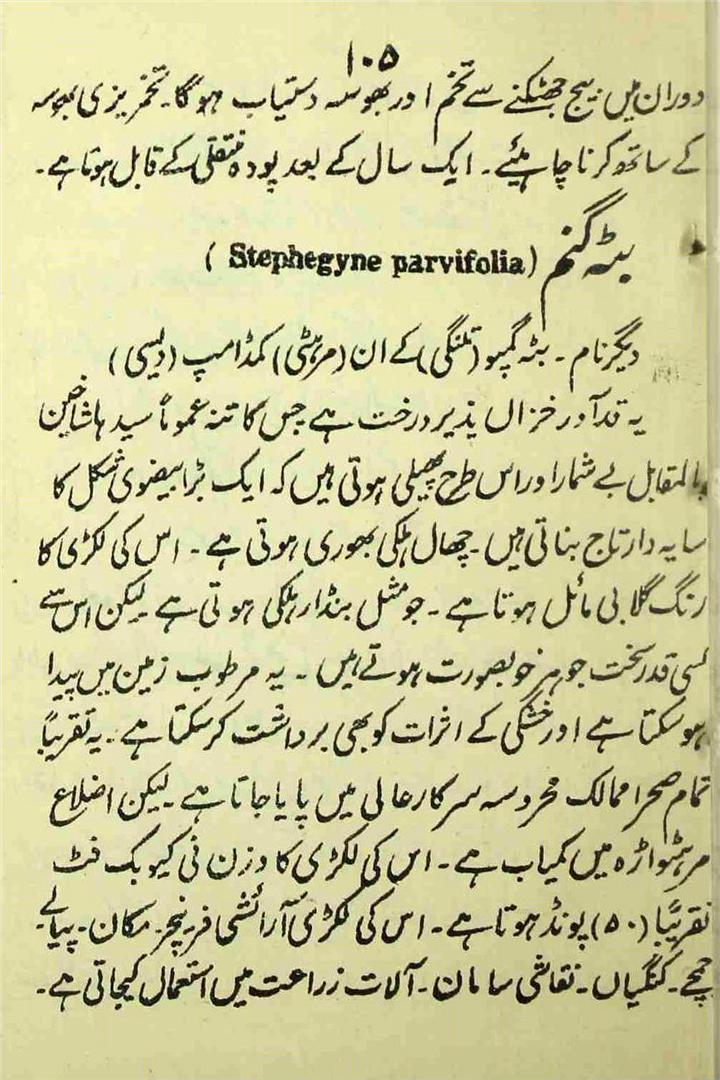 ۱۰۵
دوران میں بیج جھٹکنے سے تخم اور بھوسہ دستیاب ہوگا۔ تخمریزی بھوسہ
کے ساتھ کرنا چاہیئے۔ ایک سال کے بعد پودہ منتقلی کے قابل ہوتا ہے۔
بٹہ گنم (Stephegyne parvifolia)
دیگر نام ۔ بٹہ گمپو (تلنگی) کے ان (مرہٹی) کمڈامپ (دیسی)
یہ قدآور خزاں پذیر درخت ہے جس کا تنہ عموماً سیدہا شاخین
بالمقابل بے شمار اور اس طرح پھیلی ہوتی ہیں کہ ایک بڑا بیضوی شکل کا
سایہ دار تاج بناتی ہیں۔ چھال ہلکی بھوری ہوتی ہے۔ اس کی لکڑی کا
رنگ گلابی مائل ہوتا ہے۔ جو مثل بنڈارہلکی ہوتی ہے لیکن اس سے
کسی قدر سخت جوہر خوبصورت ہوتے ہیں ۔ یہ مرطوب زمین میں پیدا
ہو سکتا ہے اور خشکی کے اثرات کو بھی برداشت کر سکتا ہے۔ یہ تقریباً
تمام صحرا ممالک محروسہ سرکار عالی میں پایا جاتا ہے لیکن اضلاع
مرہٹواڑہ میں کمیاب ہے۔ اس کی لکڑی کا وزن فی کیوبک فٹ
تقریباً (۵۰) پونڈ ہوتا ہے۔ اس کی لکڑی آرائشی فرنیچر۔ مکان۔ پیالے
چمچے۔ کنگیاں۔ نقاشی سامان۔ آلات زراعت میں استعمال کیجاتی ہے۔